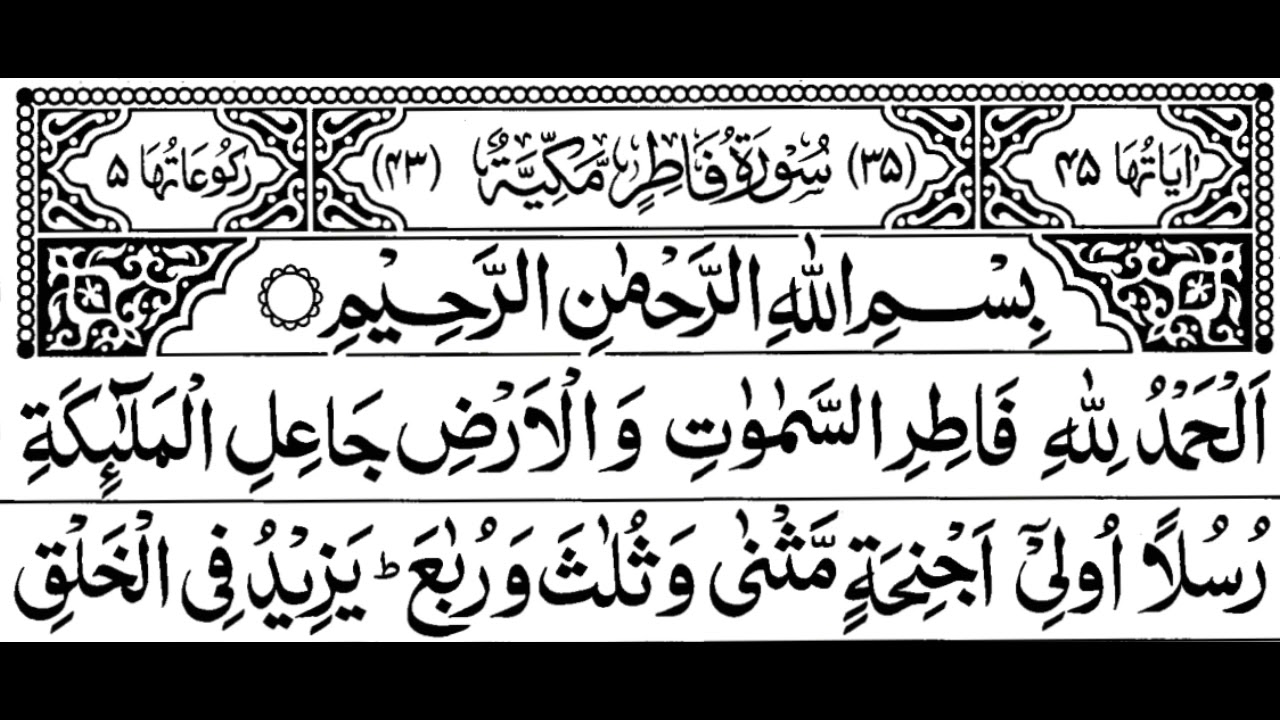 اٰیَاتُهَا ۴۵ (۳۵) سُوْرَةُ فَاطِرٍ مَّكِّیَّةٌ (۴۳) رُكُوْعَاتُهَا ۵
بِسْمِ اللّٰهِ الرَّحْمٰنِ الرَّحِیْمِ
اَلْحَمْدُ لِلّٰهِ فَاطِرِ السَّمٰوٰتِ وَ الْاَرْضِ جَاعِلِ الْمَلٰٓىِٕكَةِ
رُسُلًا اُولِیْۤ اَجْنِحَةٍ مَّثْنٰى وَ ثُلٰثَ وَ رُبٰعَ ؕ یَزِیْدُ فِی الْخَلْقِ